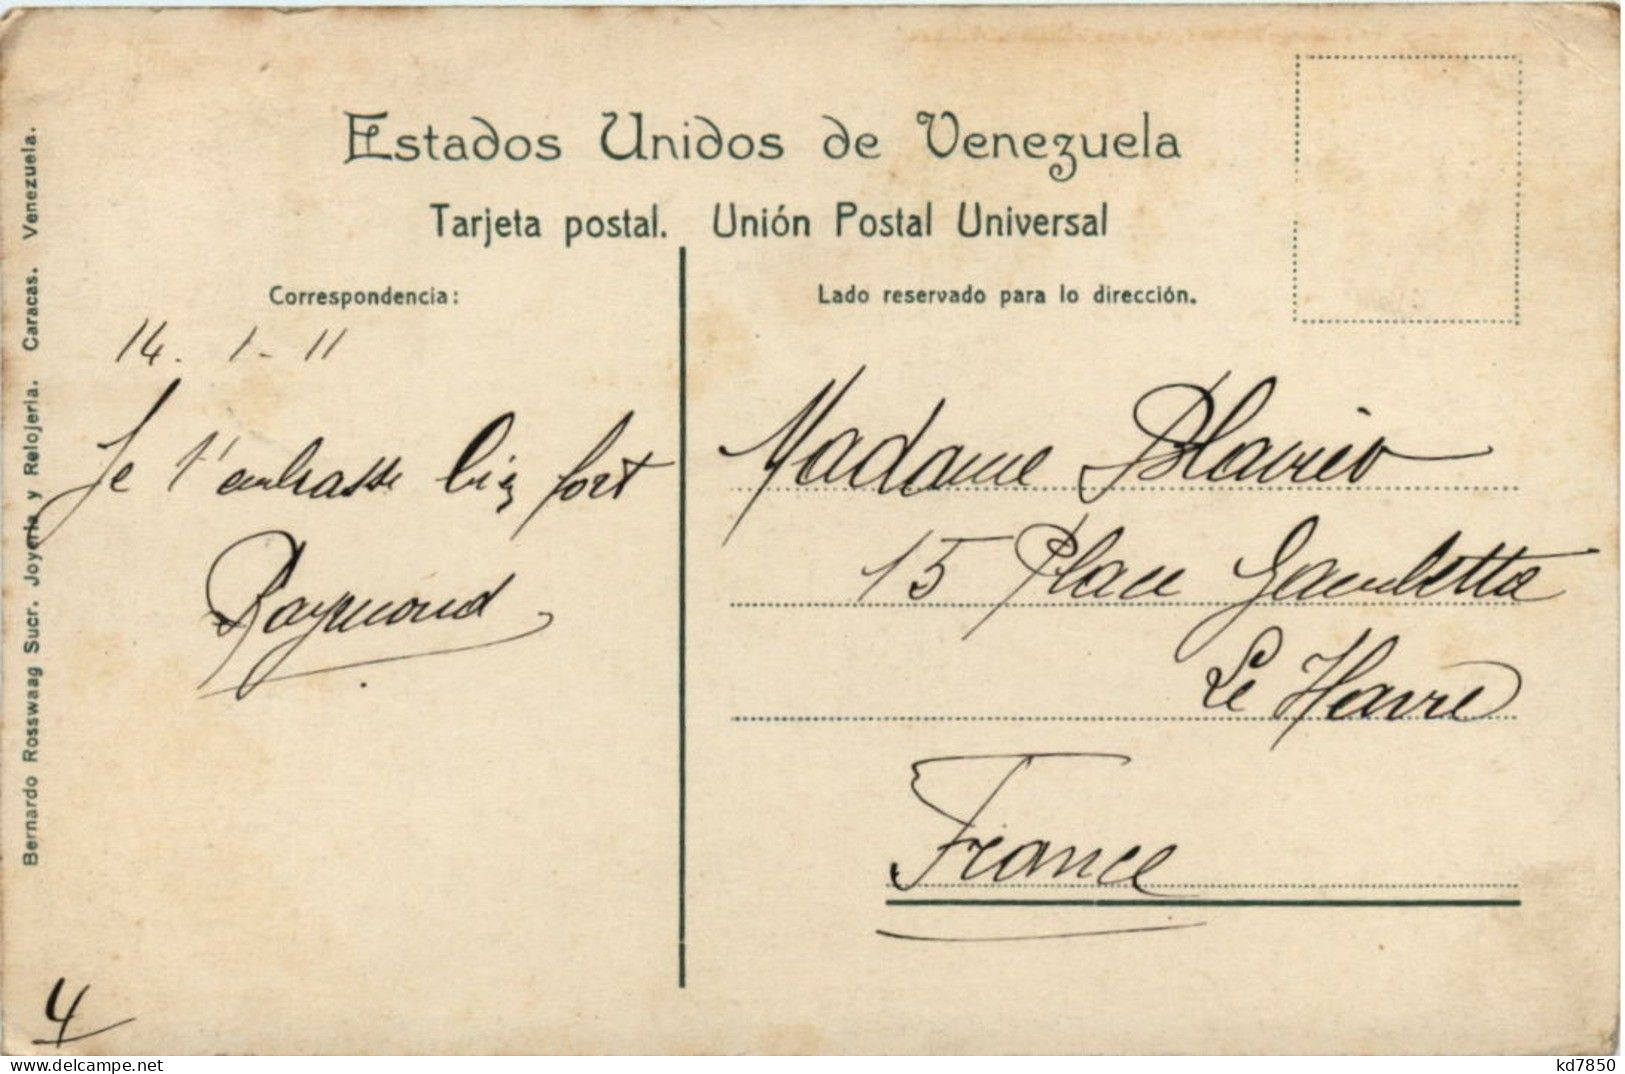 Estados Unidos de Venezuela
Tarjeta postal. Unión Postal Universal
Correspondencia:
Lado reservado para lo dirección.
14. 1-11
Je t'embrasse bien fort
Raymond
Madame
15 Place Gambetta
Le Havre
France
4
Bernardo Rosswaag Sucr. Joyería y Relojería. Caracas. Venezuela.
https://www.delcampe.net
kd7850